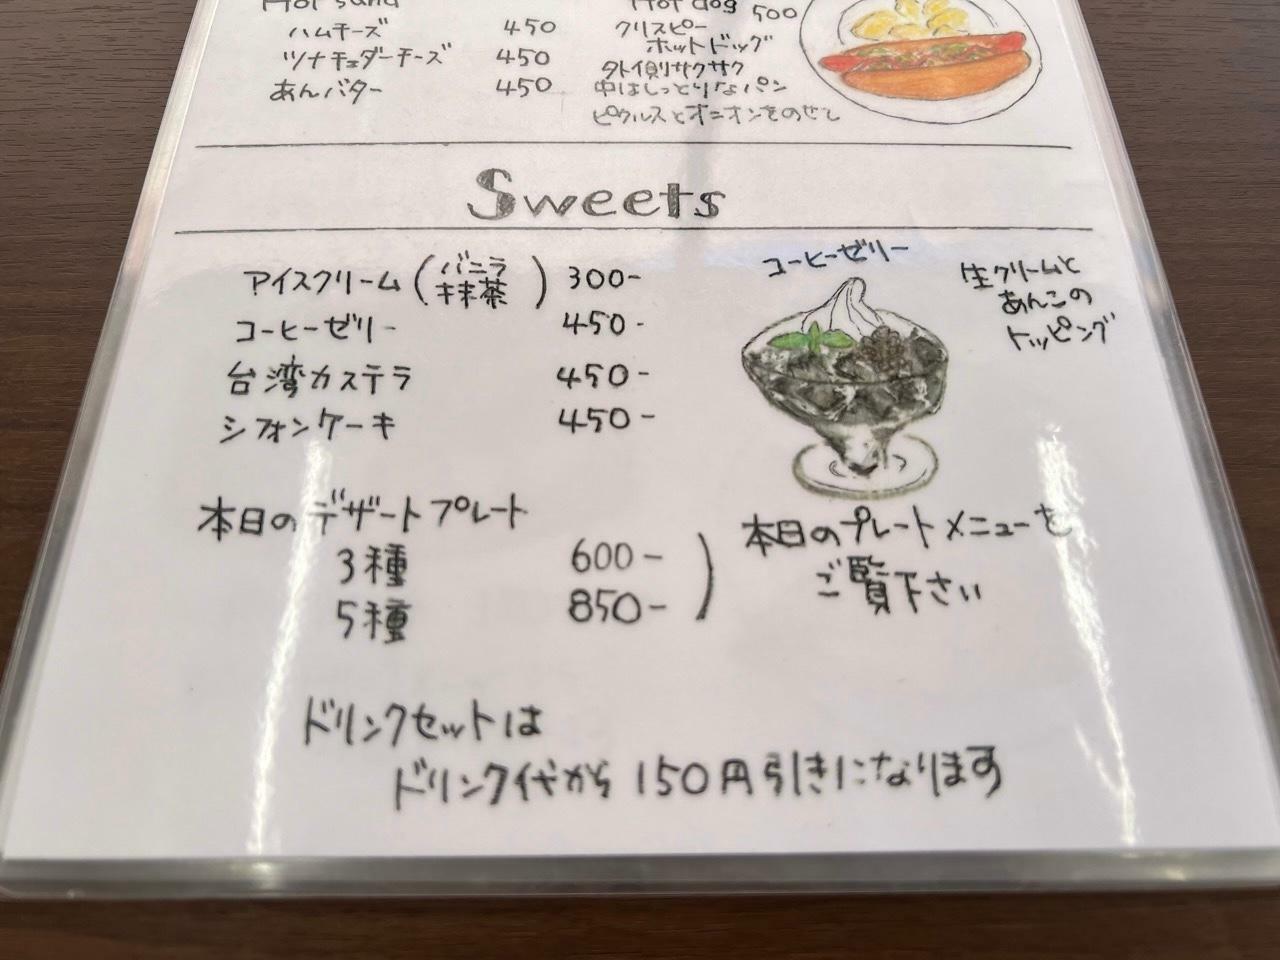 Hot sand
ハムチーズ 450
ツナチェダーチーズ 450
あんバター 450
Hot dog 500
クリスピー
ホットドッグ
外側サクサク
中はしっとりなパン
ピクルスとオニオンをのせて
Sweets
アイスクリーム(バニラ 抹茶) 300-
コーヒーゼリー 450-
台湾カステラ 450-
シフォンケーキ 450-
コーヒーゼリー
生クリームと
あんこの
トッピング
本日のデザートプレート
3種 600-
5種 850-
本日のプレートメニューを
ご覧下さい
ドリンクセットは
ドリンク代から150円引きになります